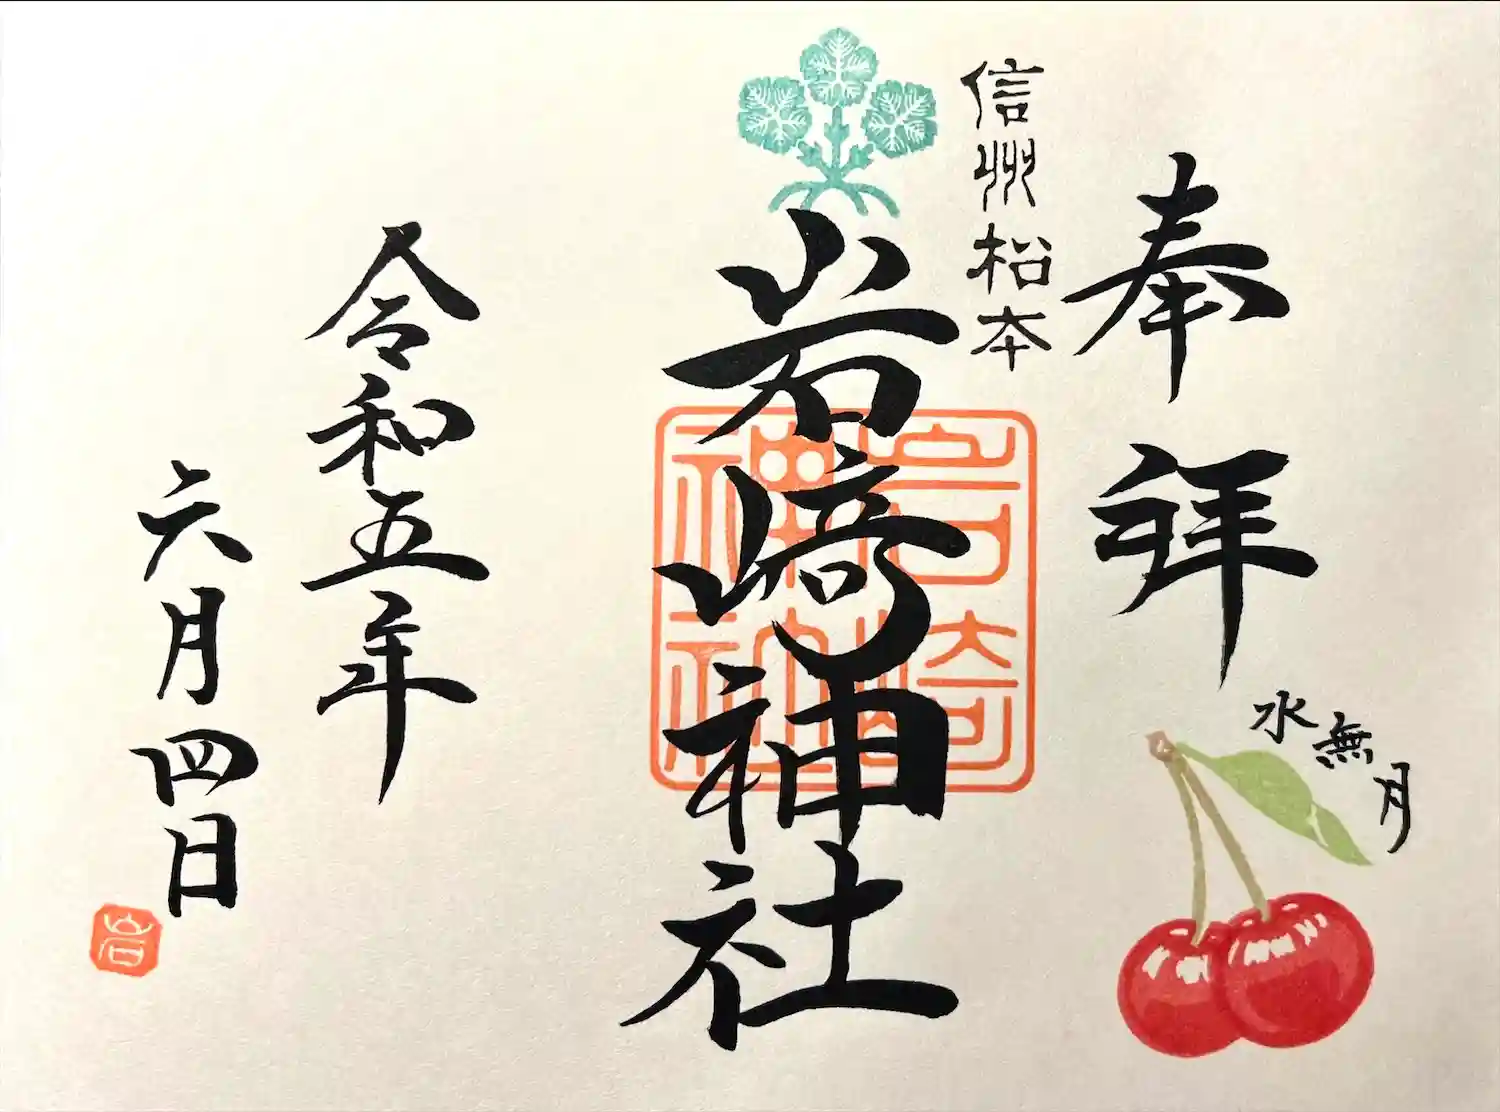 奉拝
水無月
信州松本
岩崎神社
岩崎神社
令和五年
六月四日
岩